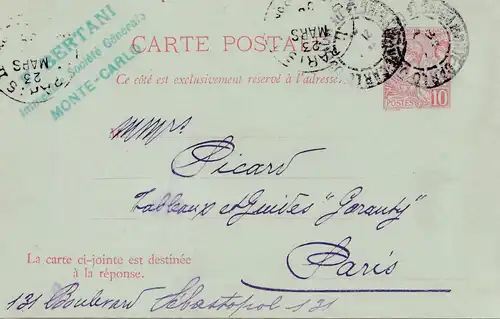 BERTANI
Société Générale
MONTE-CARLO
CARTE POSTALE
Ce côté est exclusivement réservé à l'adresse.
PARIS
23
MARS
PARIS
23
MARS
MONTE-CARLO
POSTES 10
MMrs
Picard
Tableaux et Guides "Garanty"
Paris
La carte ci-jointe est destinée
à la réponse.
131 Boulevard Sébastopol 131